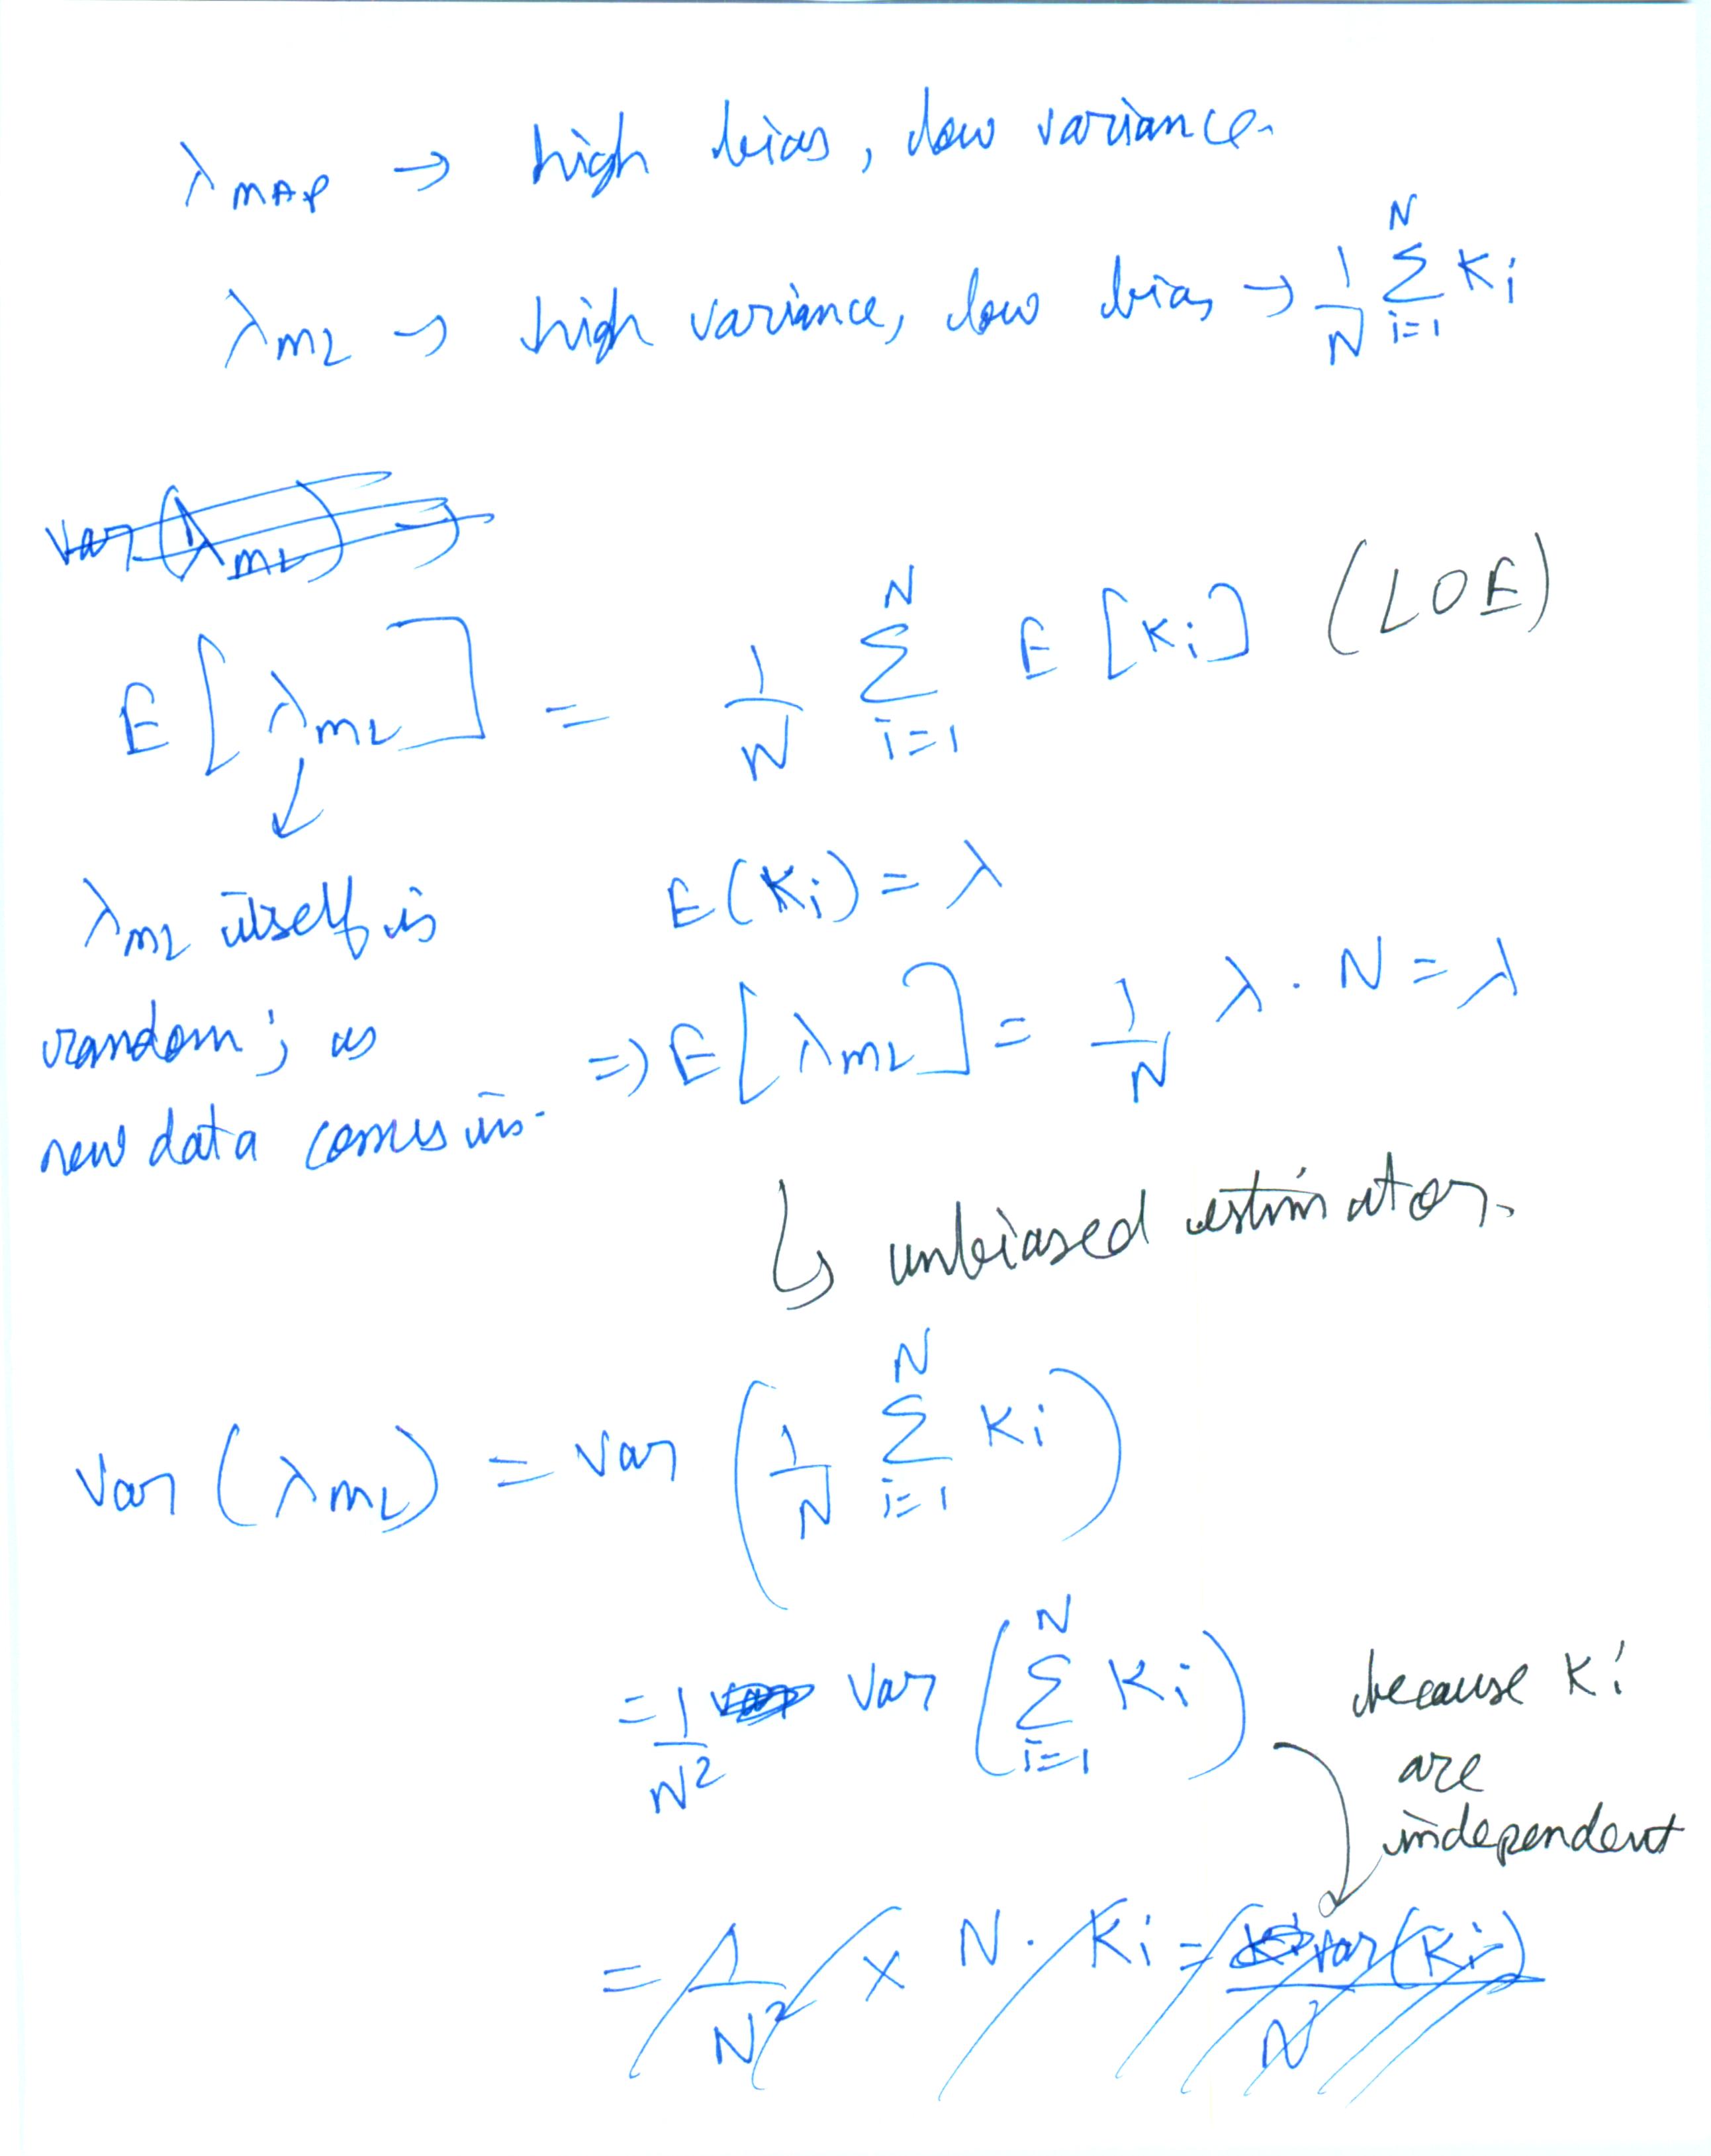 λ_MAP → high bias, low variance.
λ_ML → high variance, low bias → 1/N Σ_{i=1}^{N} K_i
var(λ_ML) →
E[λ_ML] = 1/N Σ_{i=1}^{N} E[K_i] (LOE)
↓
λ_ML itself is
random; as
new data comes in.
E(K_i) = λ
⇒ E[λ_ML] = 1/N λ · N = λ
↳ unbiased estimator.
Var(λ_ML) = Var(1/N Σ_{i=1}^{N} K_i)
= 1/N² Var(Σ_{i=1}^{N} K_i)
because K_i
are
independent
= 1/N² × N · K_i = Var(K_i)/N